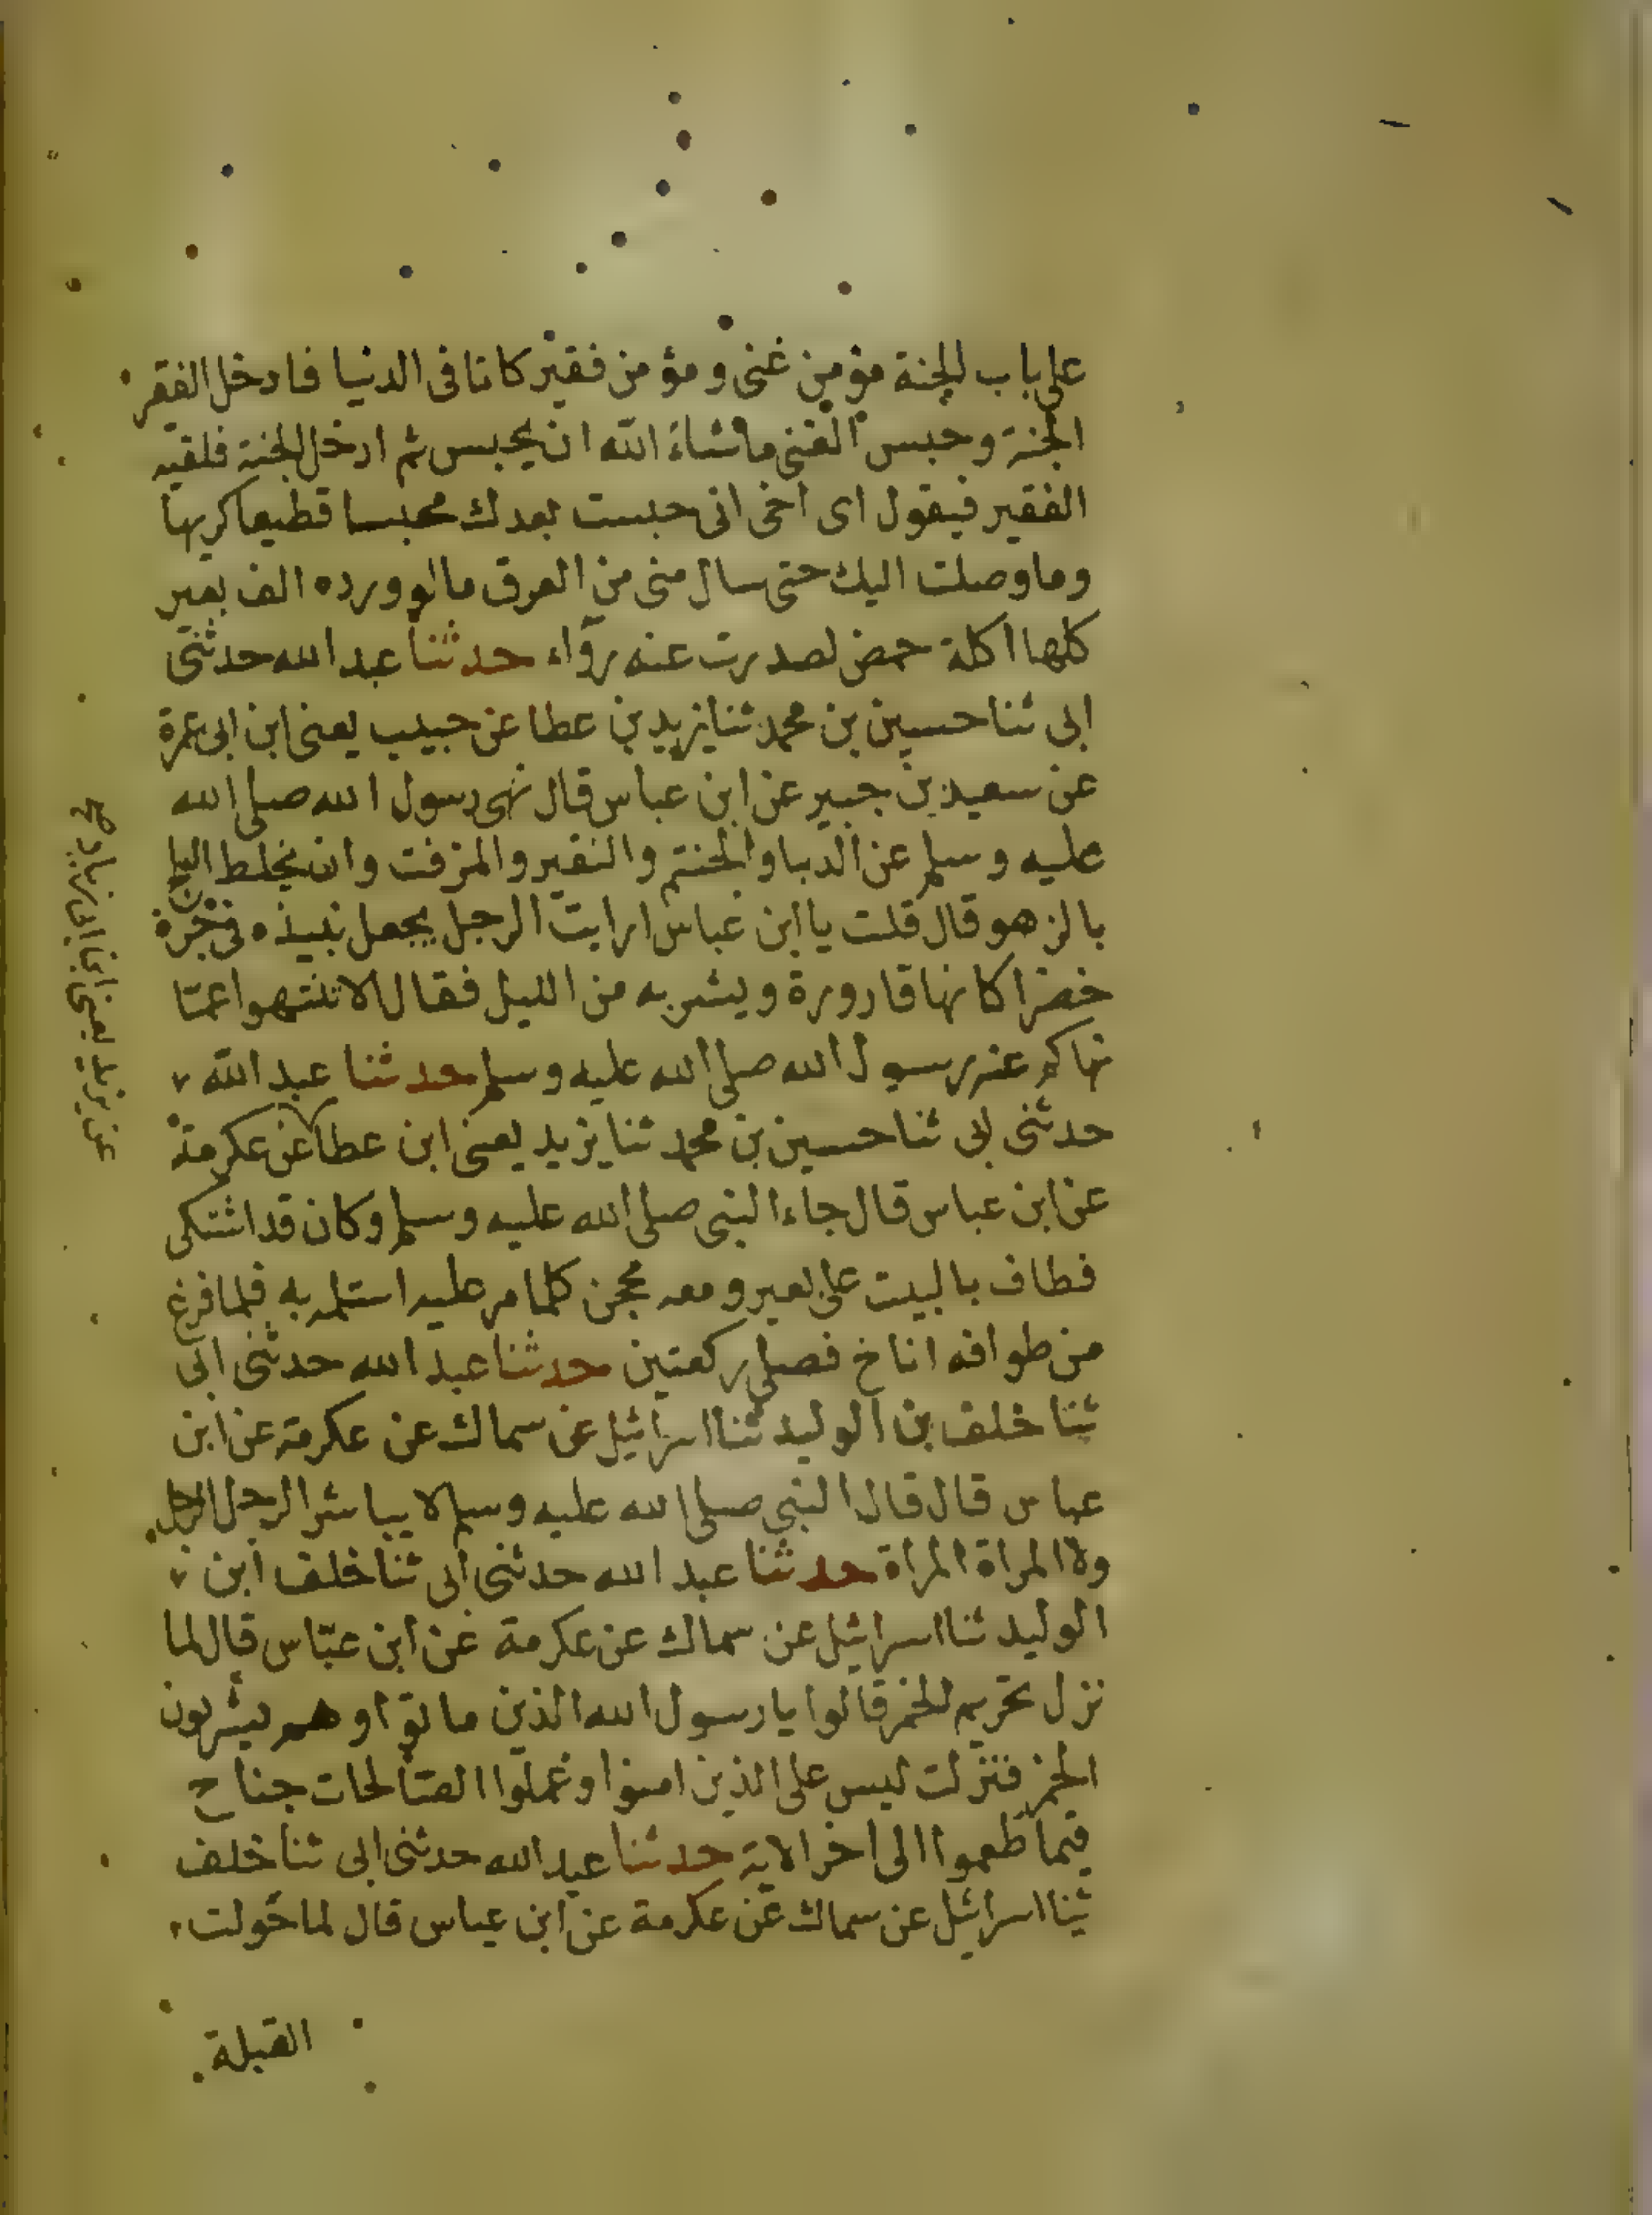 على باب الجنة مؤمن غنى ومؤمن فقير كانا فى الدنيا فادخل الفقير
الجنة وحبس الغنى ماشاء الله ان يحبس ثم ادخل الجنة فلقيه
الفقير فيقول اى اخى انى حبست بعدك محبسا قطيعا كريها
وما وصلت اليك حتى سال منى من العرق مالو ورده الف بعير
كلها اكلة حمض لصدرت عنه رواء حدثنا عبد الله حدثنى
ابى ثنا حسين بن محمد ثنا يزيد بن عطا عن حبيب يعنى ابن ابى عمرة
عن سعيد بن جبير عن ابن عباس قال نهى رسول الله صلى الله
عليه وسلم عن الدبا والحنتم والنقير والمزفت وان يخلط البلح
بالزهو قال قلت يا ابن عباس ارايت الرجل يجعل نبيذه فى جرة
خضرا كانها قارورة ويشربه من الليل فقال الا تنتهوا عما
نهاكم عنه رسول الله صلى الله عليه وسلم حدثنا عبد الله
حدثنى ابى ثنا حسين بن محمد ثنا يزيد يعنى ابن عطا عن عكرمة
عن ابن عباس قال جاء النبى صلى الله عليه وسلم وكان قد اشتكى
فطاف بالبيت على بعير ومعه محجن كلما مر عليه استلمه به فلما فرغ
من طوافه اناخ فصلى ركعتين حدثنا عبد الله حدثنى ابى
ثنا خلف بن الوليد ثنا اسرائيل عن سماك عن عكرمة عن ابن
عباس قال قال النبي صلى الله عليه وسلم لا يباشر الرجل الرجل
ولا المراة المراة حدثنا عبد الله حدثنى ابى ثنا خلف ابن
الوليد ثنا اسرائيل عن سماك عن عكرمة عن ابن عبّاس قال لما
نزل تحريم الخمر قالوا يا رسول الله الذين ماتوا وهم يشربون
الخمر فنزلت ليس على الذين امنوا وعملوا الصّالحات جناح
فيما طعموا الى اخر الاية حدثنا عبد الله حدثنى ابى ثنا خلف
ثنا اسرائيل عن سماك عن عكرمة عن ابن عباس قال لما حولت
القبلة
عن يزيد يعنى ابن ابى زياد صح